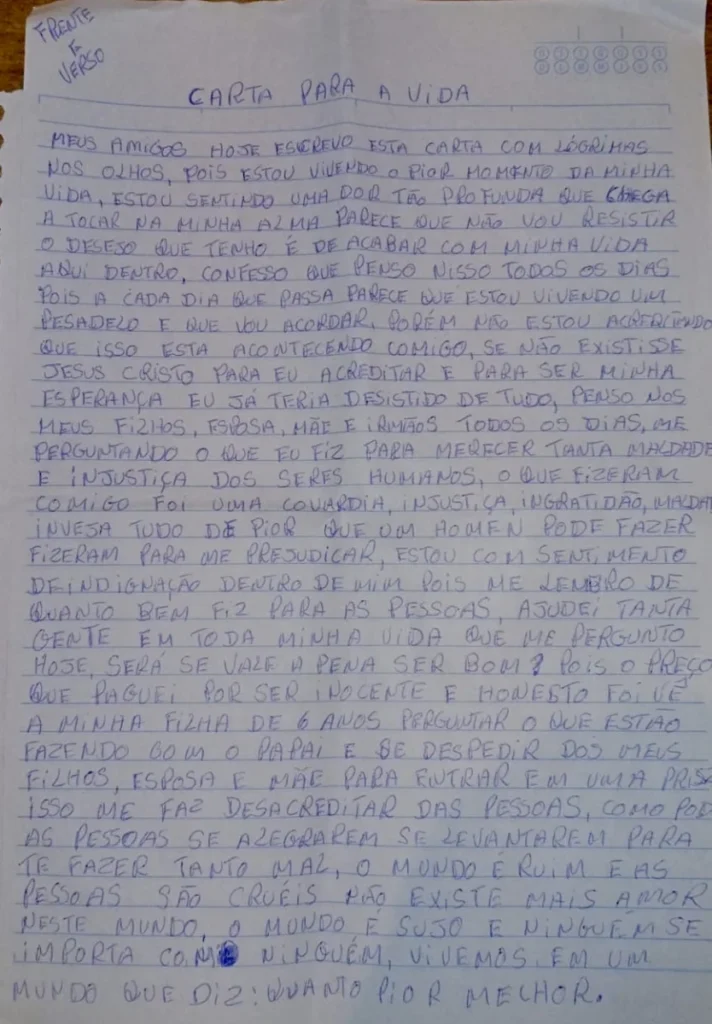 FRENTE
E
VERSO
CARTA PARA A VIDA
MEUS AMIGOS HOJE ESCREVO ESTA CARTA COM LÓGRIMAS
NOS OLHOS, POIS ESTOU VIVENDO O PIOR MOMENTO DA MINHA
VIDA, ESTOU SENTINDO UMA DOR TÃO PROFUNDA QUE CHEGA
A TOCAR NA MINHA ALMA PARECE QUE NÃO VOU RESISTIR
O DESEJO QUE TENHO É DE ACABAR COM MINHA VIDA
AQUI DENTRO, CONFESSO QUE PENSO NISSO TODOS OS DIAS
POIS A CADA DIA QUE PASSA PARECE QUE ESTOU VIVENDO UM
PESADELO E QUE VOU ACORDAR, PORÉM NÃO ESTOU ACREDITANDO
QUE ISSO ESTA ACONTECENDO COMIGO, SE NÃO EXISTISSE
JESUS CRISTO PARA EU ACREDITAR E PARA SER MINHA
ESPERANÇA EU JÁ TERIA DESISTIDO DE TUDO, PENSO NOS
MEUS FILHOS, ESPOSA, MÃE E IRMÃOS TODOS OS DIAS, ME
PERGUNTANDO O QUE EU FIZ PARA MERECER TANTA MALDADE
E INJUSTIÇA DOS SERES HUMANOS, O QUE FIZERAM
COMIGO FOI UMA COVARDIA, INJUSTIÇA, INGRATIDÃO, MALDAD
INVEJA TUDO DE PIOR QUE UM HOMEN PODE FAZER
FIZERAM PARA ME PREJUDICAR, ESTOU COM SENTIMENTO
DE INDIGNAÇÃO DENTRO DE MIM POIS ME LEMBRO DE
QUANTO BEM FIZ PARA AS PESSOAS, AJUDEI TANTA
GENTE EM TODA MINHA VIDA QUE ME PERGUNTO
HOJE, SERÁ SE VALE A PENA SER BOM? POIS O PREÇO
QUE PAGUEI POR SER INOCENTE E HONESTO FOI VÊ
A MINHA FILHA DE 6 ANOS PERGUNTAR O QUE ESTÃO
FAZENDO COM O PAPAI E SE DESPEDIR DOS MEUS
FILHOS, ESPOSA E MÃE PARA ENTRAR EM UMA PRISÃ
ISSO ME FAZ DESACREDITAR DAS PESSOAS, COMO POD
AS PESSOAS SE ALEGRAREM SE LEVANTAREM PARA
TE FAZER TANTO MAL, O MUNDO É RUIM E AS
PESSOAS SÃO CRUÉIS NÃO EXISTE MAIS AMOR
NESTE MUNDO, O MUNDO É SUJO E NINGUÉM SE
IMPORTA COM NINGUÉM, VIVEMOS EM UM
MUNDO QUE DIZ: QUANTO PIOR MELHOR.